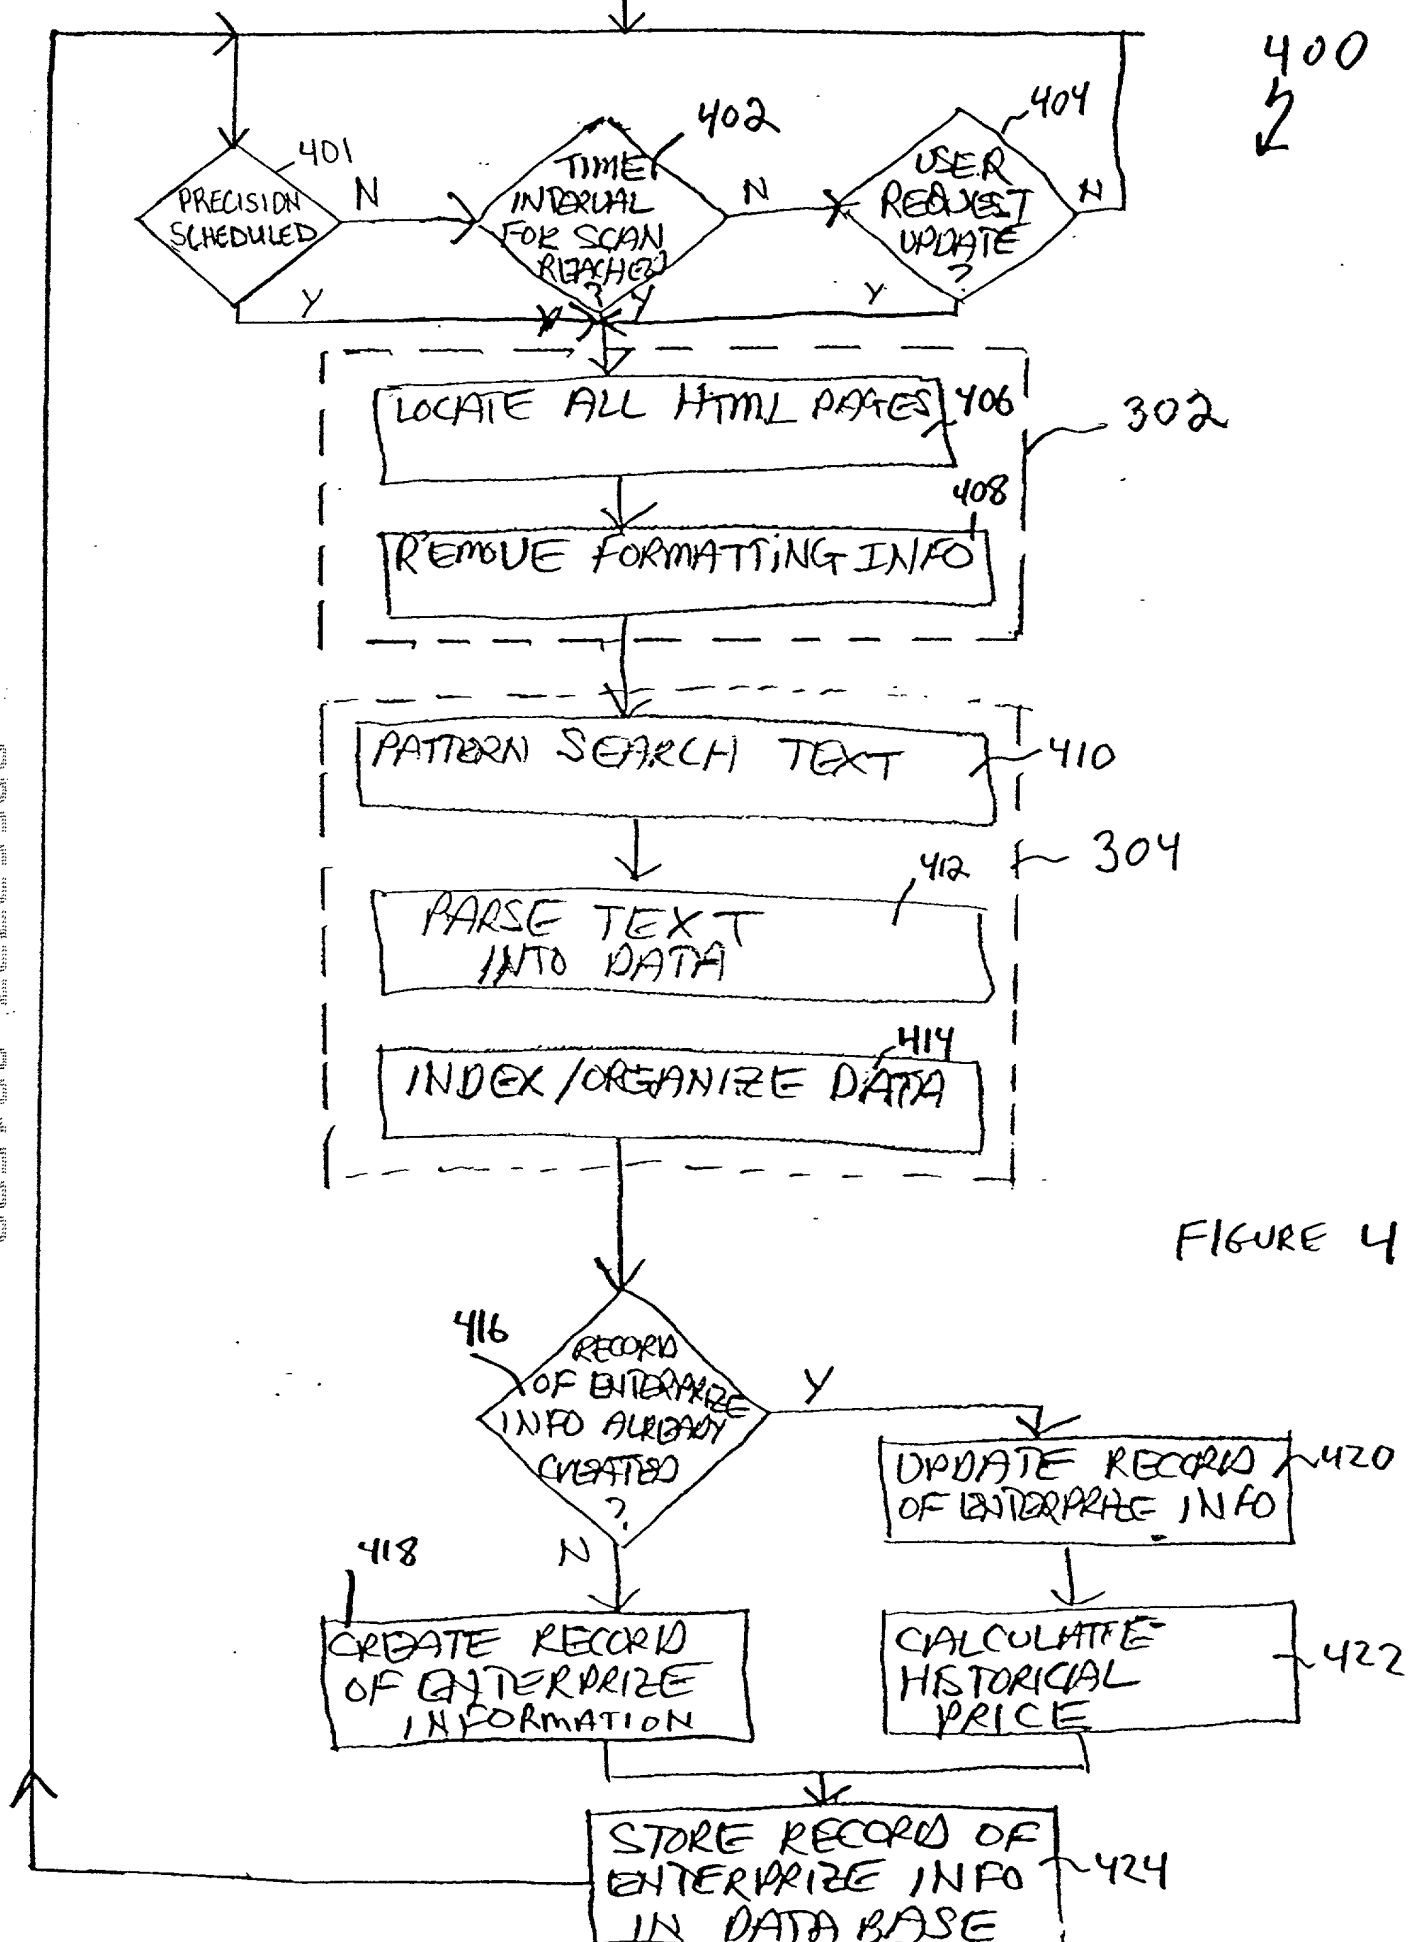 400
401
PRECISION
SCHEDULED
N
402
TIME
INTERVAL
FOR SCAN
REACHED
?
N
404
USER
REQUEST
UPDATE
?
N
Y
Y
Y
LOCATE ALL HTML PAGES
406
302
408
REMOVE FORMATTING INFO
PATTERN SEARCH TEXT
410
304
412
PARSE TEXT
INTO DATA
414
INDEX/ORGANIZE DATA
FIGURE 4
416
RECORD
OF ENTERPRIZE
INFO ALREADY
CREATED
?
Y
N
UPDATE RECORD
OF ENTERPRIZE INFO
420
418
CREATE RECORD
OF ENTERPRIZE
INFORMATION
CALCULATE
HISTORICAL
PRICE
422
STORE RECORD OF
ENTERPRIZE INFO
IN DATABASE
424